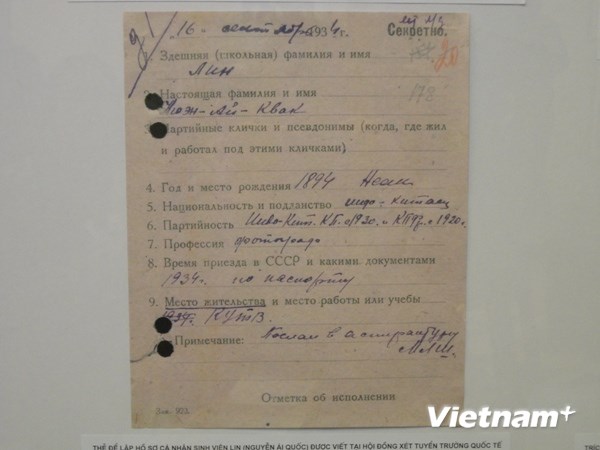 „16" сентября 1934г.
Секретно.
20
178
1. Здешняя (школьная) фамилия и имя
Лин
2. Настоящая фамилия и имя
Нгуэн-Ай-Квак
3. Партийные клички и псевдонимы (когда, где жил
и работал под этими кличками)
4. Год и место рождения 1894
5. Национальность и подданство индо-китаец
6. Партийность Индо-Кит. КП. с 1930. и КПФр. с 1920г.
7. Профессия фотограф
8. Время приезда в СССР и какими документами
1934г. по паспорту
9. Место жительства и место работы или учебы
1934г. КУТВ.
Примечание: Послан в аспирантуру
МЛШ.
Отметка об исполнении
Зак. 923.
Vietnam+
THẺ ĐỂ LẬP HỒ SƠ CÁ NHÂN SINH VIÊN LIN (NGUYỄN ÁI QUỐC) ĐƯỢC VIẾT TẠI HỘI ĐỒNG XÉT TUYỂN TRƯỜNG QUỐC TẾ